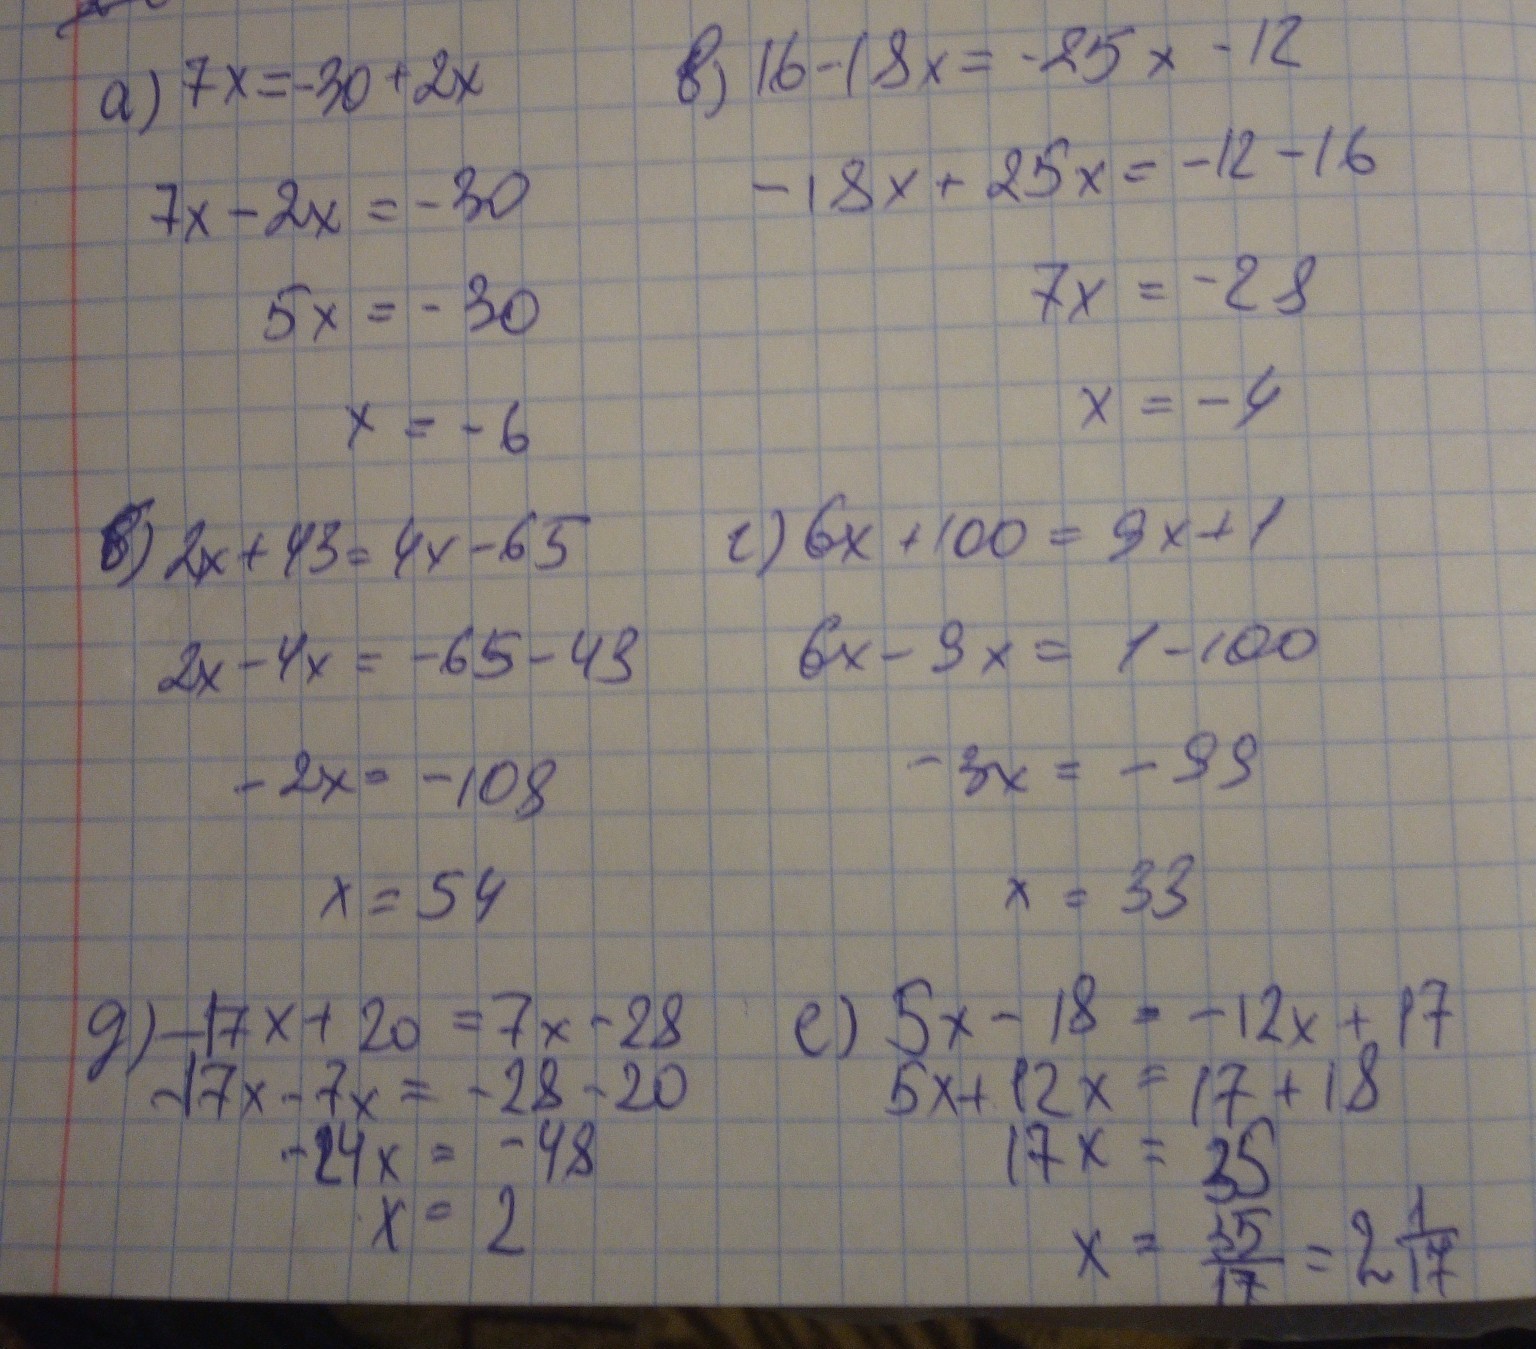 а) 7x=-30+2x
7x-2x=-30
5x=-30
x=-6
в) 16-18x=-25x-12
-18x+25x=-12-16
7x=-28
x=-4
б) 2x+43=4x-65
2x-4x=-65-43
-2x=-108
x=54
г) 6x+100=9x+1
6x-9x=1-100
-3x=-99
x=33
д) -17x+20=7x-28
-17x-7x=-28-20
-24x=-48
x=2
е) 5x-18=-12x+17
5x+12x=17+18
17x=35
x=35/17=2 1/17